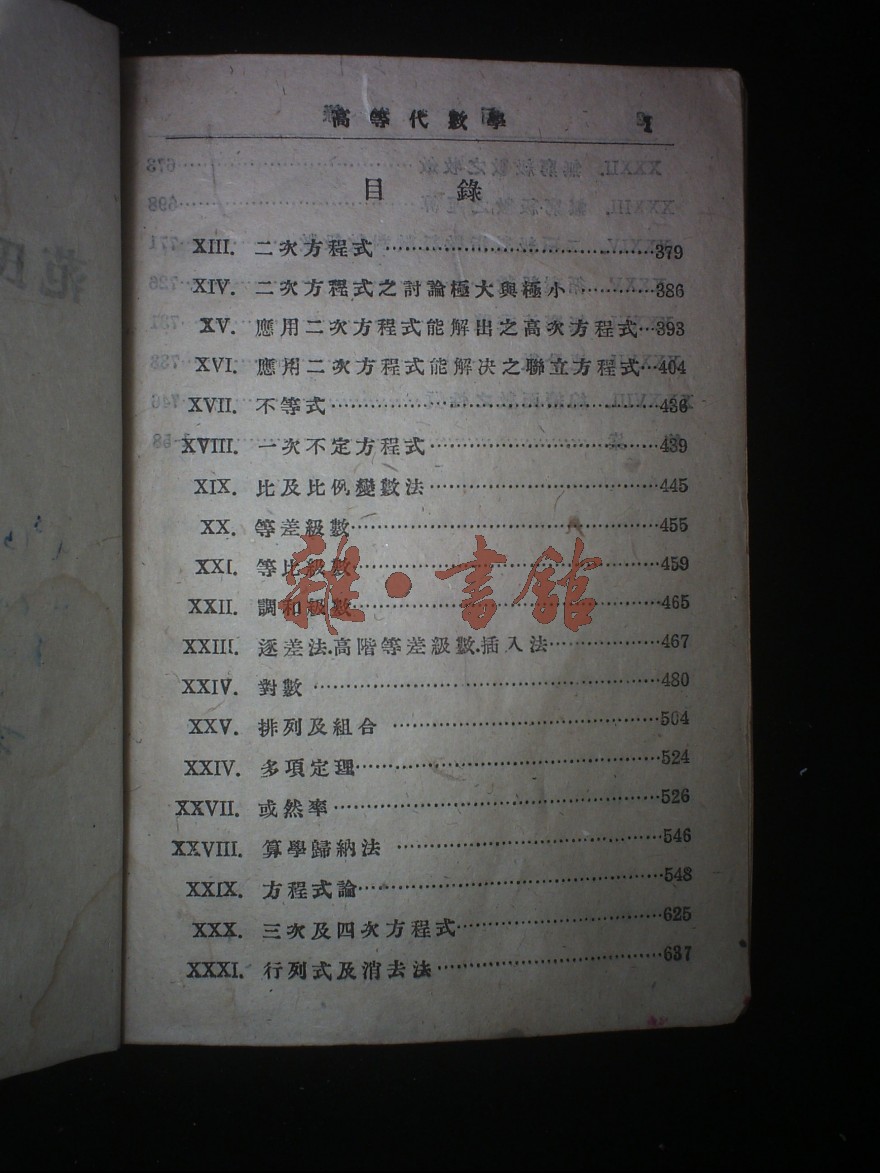 高等代數學
目錄
XIII. 二次方程式……379
XIV. 二次方程式之討論極大與極小……386
XV. 應用二次方程式能解出之高次方程式…393
XVI. 應用二次方程式能解決之聯立方程式…404
XVII. 不等式……436
XVIII. 一次不定方程式……439
XIX. 比及比例變數法……445
XX. 等差級數……455
XXI. 等比級數……459
XXII. 調和級數……465
XXIII. 逐差法.高階等差級數.插入法……467
XXIV. 對數……480
XXV. 排列及組合……504
XXIV. 多項定理……524
XXVII. 或然率……526
XXVIII. 算學歸納法……546
XXIX. 方程式論……548
XXX. 三次及四次方程式……625
XXXI. 行列式及消去法……637
雜·書館